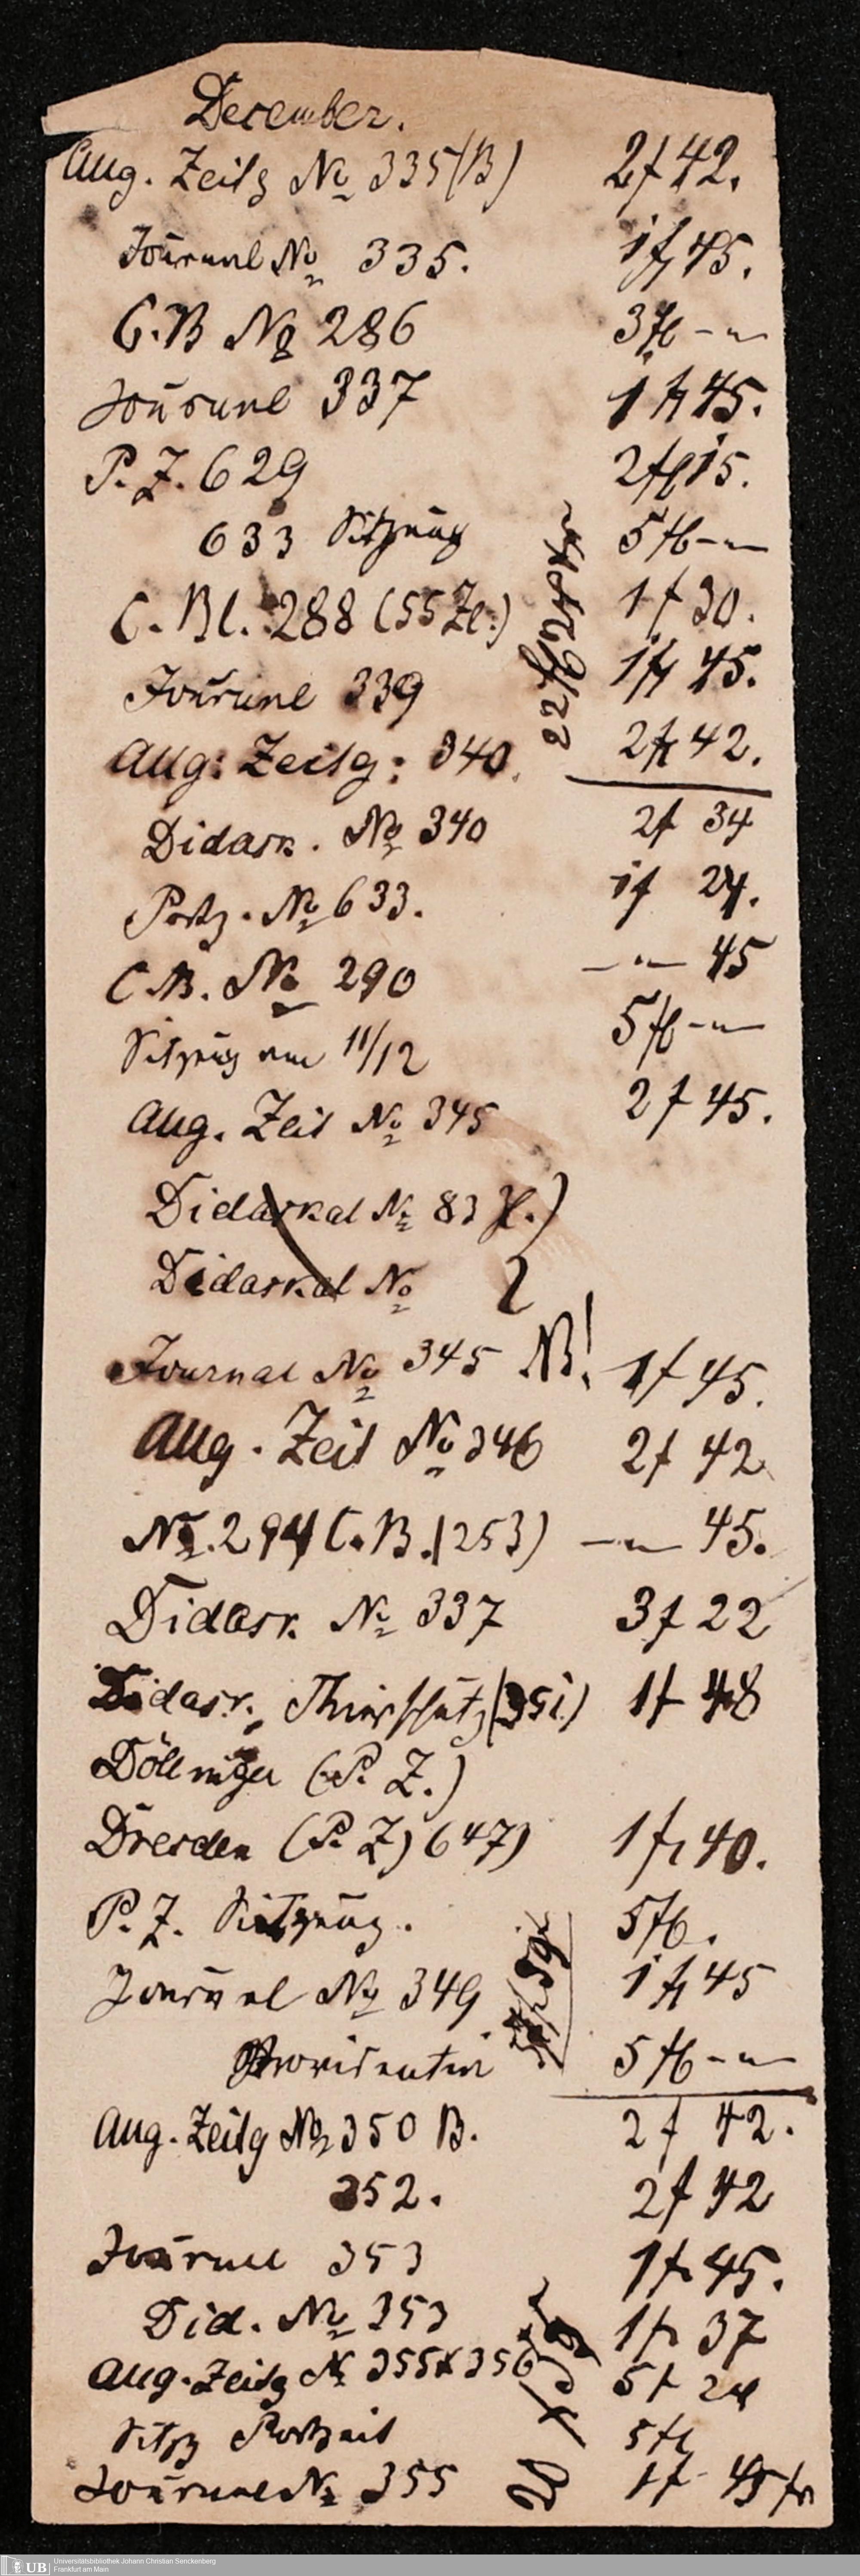 December.
Aug. Zeitg No 335 (B) 2 f 42.
Journal No 335. 1 f 45.
C. B No 286 3 fl - "-
Journal 337 1 fr 45.
P. Z. 629 2 fl 15.
633 Sitzung 5 fl - "-
C. Bl. 288 (55 Ze.) 1 f 30.
Journal 339 1 fr 45.
22 fl 24
Aug: Zeitg: 340. 2 fr 42.
Didask. No 340 2 f 34
Postz. No 633. 1 f 24.
C. B. No 290 - " - 45
Sitzung am 11/12 5 fl - "-
Aug. Zeit No 345 2 f 45.
Didaskal No 83
Didaskal No
Journal No 345 NB! 1 f 45.
Aug. Zeit No 346 2 f 42
No. 294 C. B. (253) - " - 45.
Didask. No 337 3 f 22
Didask. (351) 1 f 48
Döllinger (P. Z.)
Dresden (P. Z) 647) 1 fr 40.
P. Z. Sitzung. 5 fl.
Journal No 349 1 fr 45
Providentia 5 fl - "-
Aug. Zeitg No 350 B. 2 f 42.
352. 2 f 42
Journal 353 1 fr 45.
Did. No 353 1 fr 37
Aug. Zeitg No 355 & 356 5 f 24
Sitzg 5 fl
Journal No 355 1 f 45 fr
UB Universitätsbibliothek Johann Christian Senckenberg
Frankfurt am Main